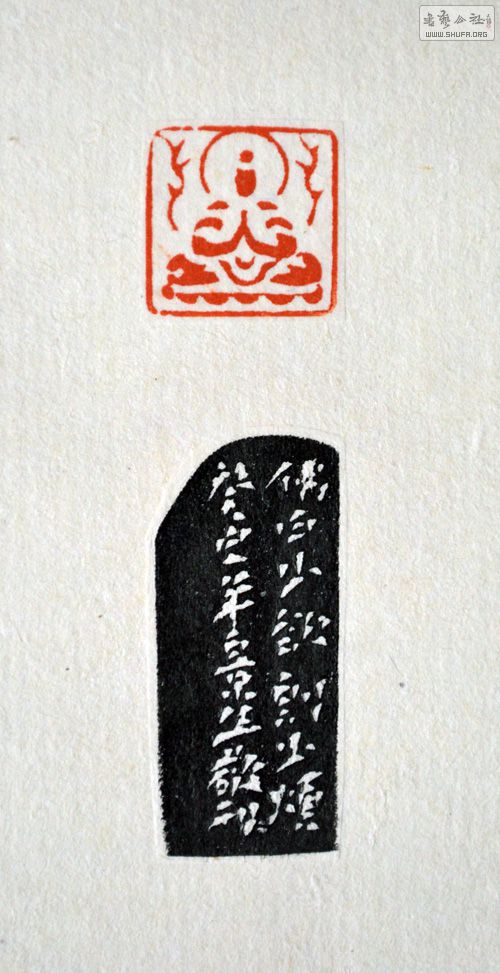 書藝公社
WWW.SHUFA.ORG
佛曰少欲則少煩
癸巳年景生敬